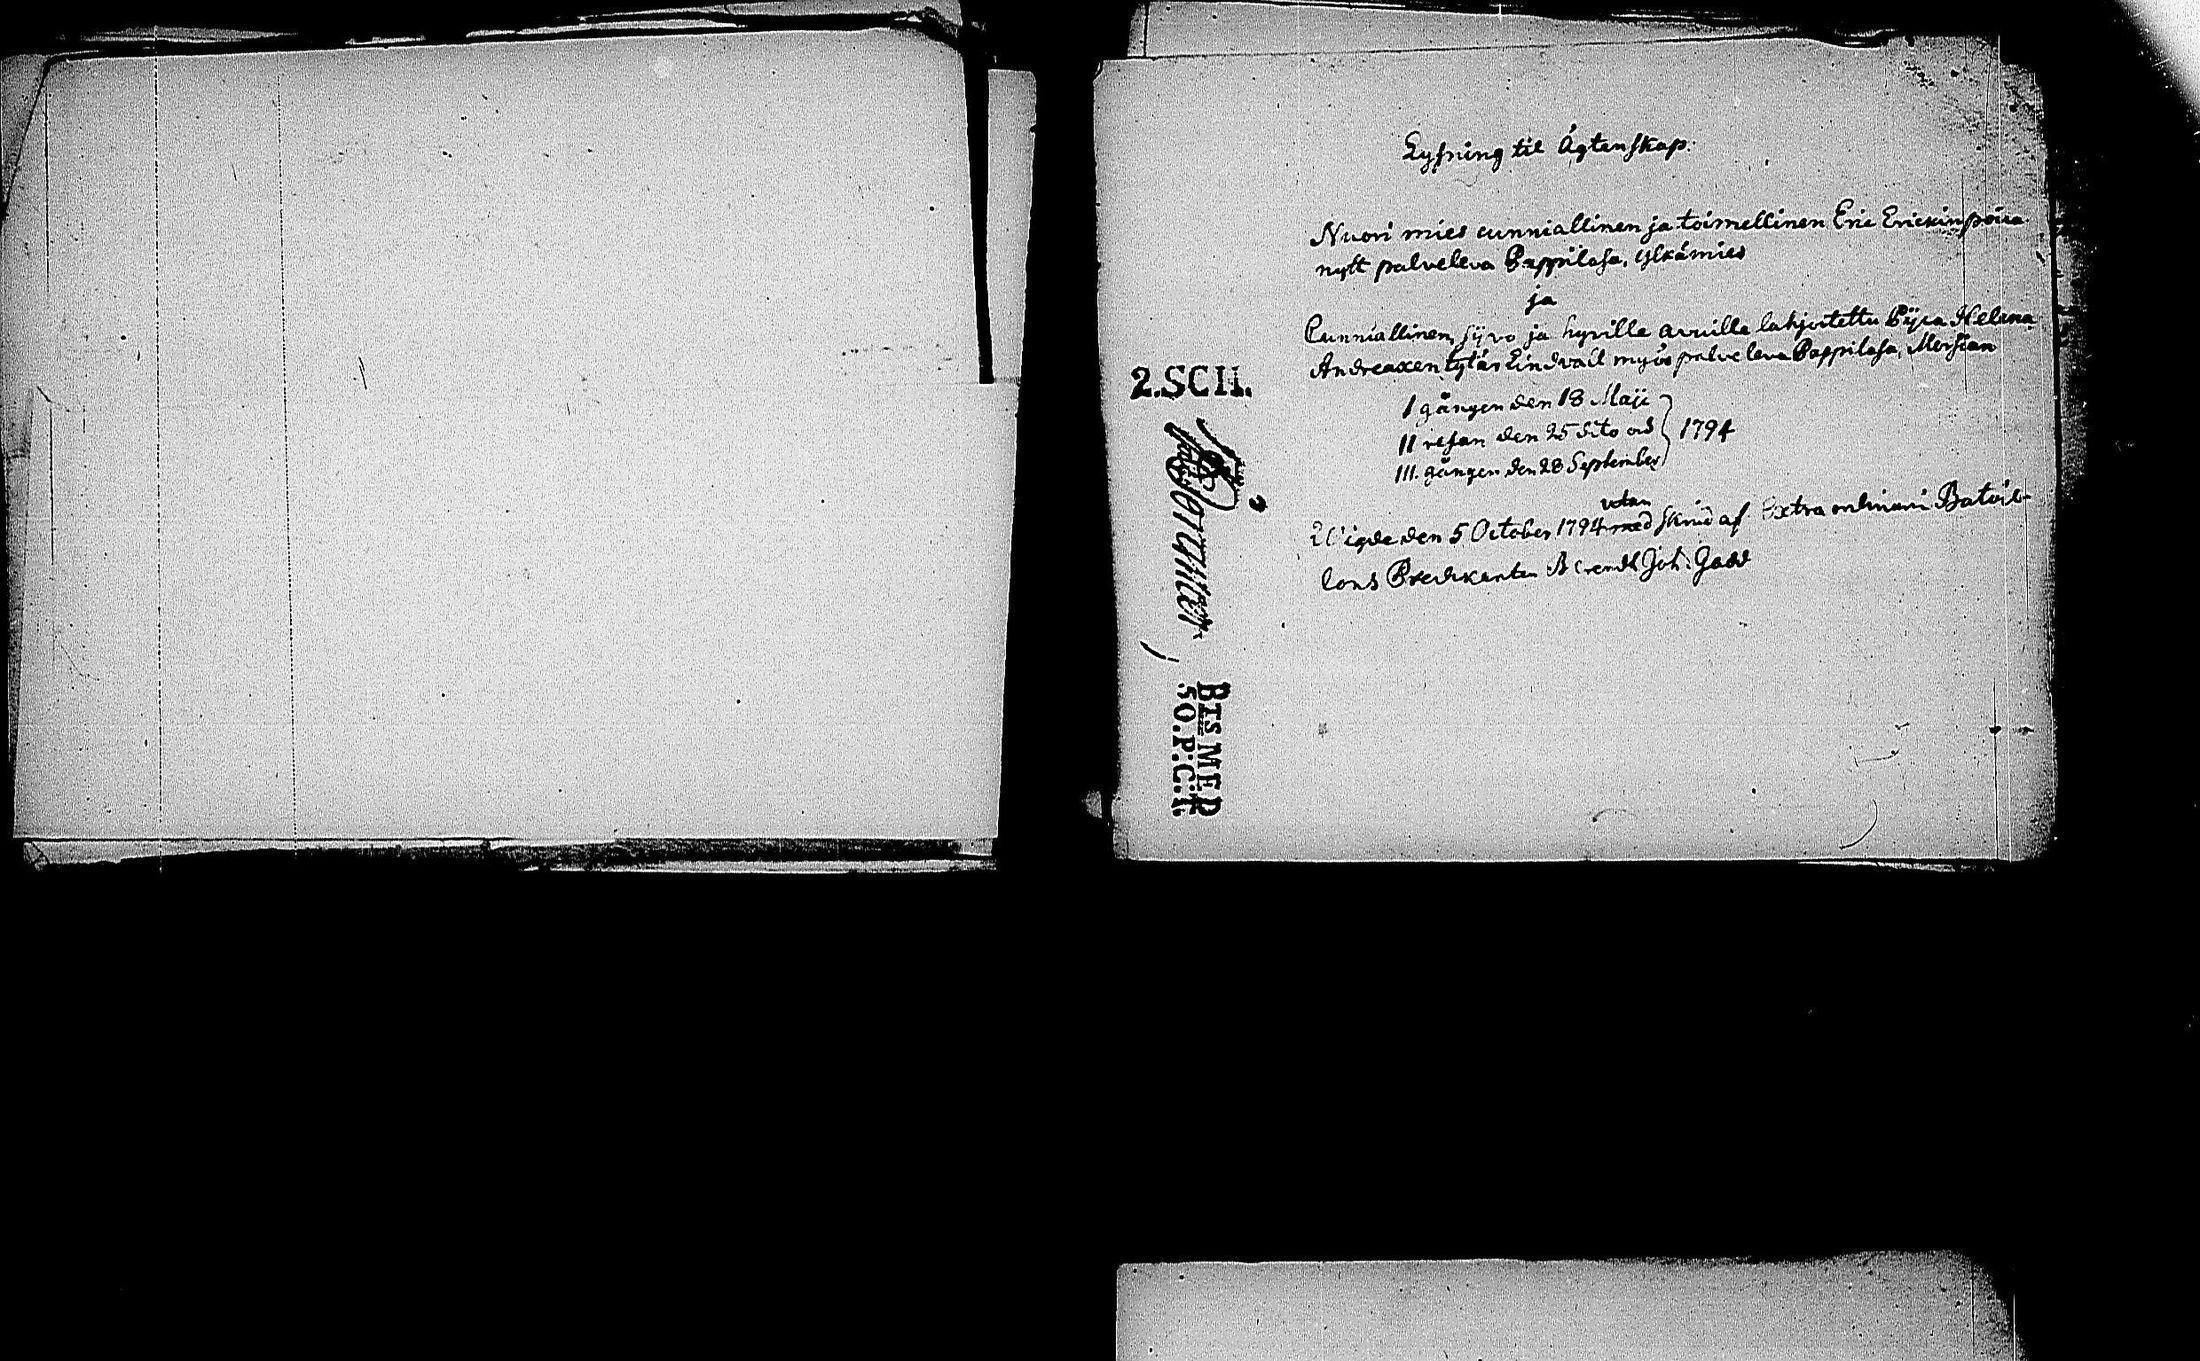 Lysning til Ägtenskap.
Nuori mies cunniallinen ja toimellinen Eric Erickinpoica
nytt palveleva Pappilasa, ylkämies
ja
Cunniallinen, siivo ja hyville avuille lahjoitettu Pijca Helena
Andreaxen tytär Lindvall myös palveleva Pappilasa, Morsian
I gången den 18 Maji
II resan den 25 dito och
III. gången den 28 September
1794
utan
Wigde den 5 October 1794 med skrud af Extra ordinarie Batail-
lons Predikanten Berendt Joh. Gadd
2.SCH.
BTS MER
50.P:C:T.